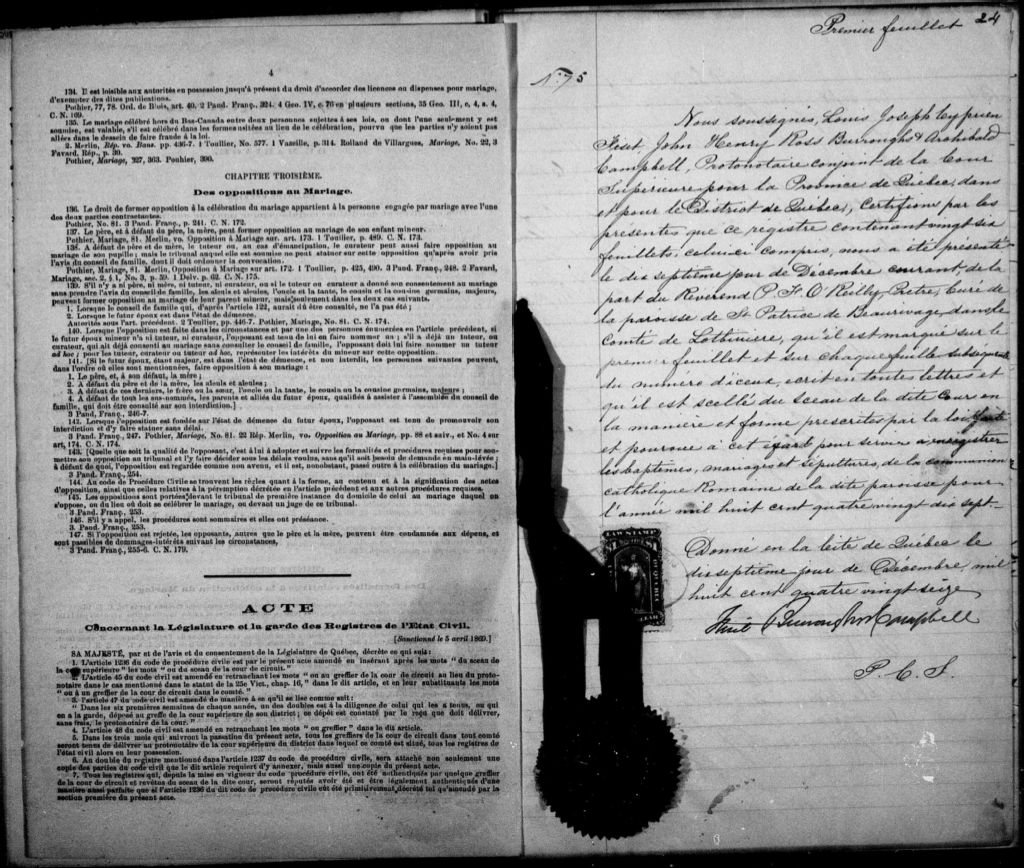 4
134. Il est loisible aux autorités en possession jusqu'à présent du droit d'accorder des licences ou dispenses pour mariage,
d'exempter des dites publications.
Pothier, 77, 78. Ord. de Blois, art. 40. 2 Pand. Franç., 324. 4 Geo. IV, c. 76 en plusieurs sections, 35 Geo. III, c, 4, s. 4,
C. N. 169.
135. Le mariage célébré hors du Bas-Canada entre deux personnes sujettes à ses lois, ou dont l'une seulement y est
soumise, est valable, s'il est célébré dans les formes usitées au lieu de la célébration, pourvu que les parties n'y soient pas
allées dans le dessein de faire fraude à la loi.
2. Merlin, Rép. vo. Bans. pp. 436-7. 1 Toullier, No. 577. 1 Vazille, p. 314. Rolland de Villargues, Mariage, No. 22, 3
Favard, Rép., p. 30.
Pothier, Mariage, 327, 363. Pouhier, 390.
CHAPITRE TROISIÈME.
Des oppositions au Mariage.
136. Le droit de former opposition à la célébration du mariage appartient à la personne engagée par mariage avec l'une
des deux parties contractantes.
Pothier, No. 81. 3 Pand. Franç., p. 241. C. N. 172.
137. Le père, et à défaut du père, la mère, peut former opposition au mariage de son enfant mineur.
Pothier, Mariage, 81. Merlin, vo. Opposition à Mariage sur. art. 173. 1 Toullier, p. 489. C. N. 173.
138. A défaut de père et de mère, le tuteur ou, au cas d'émancipation, le curateur peut aussi faire opposition au
mariage de son pupille; mais le tribunal auquel elle est soumise ne peut statuer sur cette opposition qu'après avoir pris
l'avis du conseil de famille, dont il doit ordonner la convocation.
Pothier, Mariage, 81. Merlin, Opposition à Mariage sur art. 172. 1 Toullier, p. 425, 490. 3 Pand. Franç., 248. 2 Favard,
Mariage, sec. 2, § 1, No. 3, p. 39. 1 Delv. p. 62. C. N. 175.
139. S'il n'y a ni père, ni mère, ni tuteur, ni curateur, ou si le tuteur ou curateur a donné son consentement au mariage
sans prendre l'avis du conseil de famille, les aïeuls et aïeules, l'oncle et la tante, le cousin et la cousine germains, majeurs,
peuvent former opposition au mariage de leur parent mineur, mais seulement dans les deux cas suivants.
1. Lorsque le conseil de famille qui, d'après l'article 122, aurait dû être consulté, ne l'a pas été;
2. Lorsque le futur époux est dans l'état de démence.
Autorités sous l'art. précédent. 2 Toullier, pp. 446-7. Pothier, Mariage, No. 81. C. N. 174.
140. Lorsque l'opposition est faite dans les circonstances et par une des personnes énumérées en l'article précédent, si
le futur époux mineur n'a ni tuteur, ni curateur, l'opposant est tenu de lui en faire nommer un; s'il a déjà un tuteur, ou
curateur, qui ait déjà consenti au mariage sans consulter le conseil de famille, l'opposant doit lui faire nommer un tuteur
ad hoc; pour les tuteur, curateur ou tuteur ad hoc, représenter les intérêts du mineur sur cette opposition.
141. [Si le futur époux, étant majeur, est dans l'état de démence, et non interdit, les personnes suivantes peuvent,
dans l'ordre où elles sont mentionnées, faire opposition à son mariage:
1. Le père, et, à son défaut, la mère;
2. A défaut du père et de la mère, les aïeuls et aïeules;
3. A défaut de ces derniers, le frère ou la sœur, l'oncle ou la tante, le cousin ou la cousine germains, majeurs;
4. A défaut de tous les sus-nommés, les parents et alliés du futur époux, qualifiés à assister à l'assemblée du conseil de
famille, qui doit être consulté sur son interdiction.]
3 Pand. Franç., 246-7.
142. Lorsque l'opposition est fondée sur l'état de démence du futur époux, l'opposant est tenu de promouvoir son
interdiction et d'y faire statuer sans délai.
3 Pand. Franç., 247. Pothier, Mariage, No. 81. 22 Rép. Merlin, vo. Opposition au Mariage, pp. 88 et suiv., et No. 4 sur
art, 174. C. N. 174.
143. [Quelque soit la qualité de l'opposant, c'est à lui à adopter et suivre les formalités et procédures requises pour soumettre
son opposition au tribunal et l'y faire décider sous les délais voulus, sans qu'il soit besoin de demande en main-lévée;
à défaut de quoi, l'opposition est regardée comme non avenu, et il est, nonobstant, passé outre à la célébration du mariage.]
3 Pand. Franç., 254.
144. Au code de Procédure Civile se trouvent les règles quant à la forme, au contenu et à la signification des actes
d'opposition, ainsi que celles relatives à la péremption décrétée en l'article précédent et aux autres procédures requises.
145. Les oppositions sont portées devant le tribunal de première instance du domicile de celui au mariage duquel on
s'oppose, ou du lieu où doit se célébrer le mariage, ou devant un juge de ce tribunal.
3 Pand. Franç., 253.
146. S'il y a appel, les procédures sont sommaires et elles ont préséance.
3. Pand. Franç., 253.
147. Si l'opposition est rejetée, les opposants, autres que le père et la mère, peuvent être condamnés aux dépens, et
sont passibles de dommages-intérêts suivant les circonstances,
3 Pand. Franç., 255-6. C. N. 179.
ACTE
Concernant la Législature et la garde des Registres de l'Etat Civil.
[Sanctionné le 5 avril 1869.]
SA MAJESTÉ, par et de l'avis et du consentement de la Législature de Québec, décrète ce qui suit:
1. L'article 1236 du code de procédure civile est par le présent acte amendé en insérant après les mots "du sceau de
la cour supérieure" les mots "ou du sceau de la cour de circuit."
2. L'article 45 du code civil est amendé en retranchant les mots "ou au greffier de la cour de circuit au lieu du protonotaire
dans le cas mentionné dans le statut de la 25e Vict., chap. 16," dans le dit article, et en leur substituant les mots
"ou à un greffier de la cour de circuit dans le comté."
3. l'article 47 du code civil est amendé de manière à ce qu'il se lise comme suit:
"Dans les six premières semaines de chaque année, un des doubles est à la diligence de celui qui les a tenus, ou qui
en a la garde, déposé au greffe de la cour supérieure de son district; ce dépôt est constaté par le reçu que doit délivrer,
sans frais, le protonotaire de la cour."
4. L'article 48 du code civil est amendé en retranchant les mots "ou greffier" dans le dit article.
5. Dans les trois mois qui suivront la passation du présent acte, tous les greffiers de la cour de circuit dans tout comté
seront tenus de délivrer au protonotaire de la cour supérieure du district dans lequel ce comté est situé, tous les registres de
l'état civil alors en leur possession.
6. Au double du registre mentionné dans l'article 1237 du code de procédure civile, sera attaché non seulement une
copie des parties du code civil que le dit article requiert d'y annexer, mais aussi une copie du présent acte.
7. Tous les registres qui, depuis la mise en vigueur du code procédure civile, ont été authentiqués par quelque greffier
de la cour de circuit et revêtus du sceau de la dite cour, seront réputés avoir été et être légalement authentiqués d'une
manière aussi parfaite que si l'article 1236 du dit code de procédure civile eût été primitivement décrété tel qu'amendé par la
section première du présent acte.
24
Premier feuillet
No. 75
Nous soussignés, Louis Joseph Cyprien
Fiset, John Henry Ross Burroughs & Archibald
Campbell, Protonotaire conjoint de la Cour
Supérieure pour la Province de Québec, dans
et pour le District de Québec, Certifions par les
présentes que ce registre contenant vingt six
feuillets, celui-ci compris, nous a été présenté
le dix septième jour de Décembre courant, de la
part du Reverend P. F. O'Reilly Prêtre, Curé de
la paroisse de St. Patrice de Beaurivage, dans le
Comté de Lotbiniere, qu'il est marqué sur le
premier feuillet et sur chaque feuille subsequente
du numéro d'iceux, ecrit en toutes lettres et
qu'il est scellé du Sceau de la dite Cour en
la manière et forme prescrites par la loi faite
et pourvue à cet égard pour servir a enregistrer
les baptemes, mariages et sépultures, de la communion
catholique Romaine de la dite paroisse pour
l'année mil huit cent quatre vingt dix sept.
LAW STAMP
QUEBEC
Donné en la Cité de Québec le
dix septième jour de Décembre, mil
huit cent quatre vingt seize
Fiset Burroughs & Campbell
P. C. S.